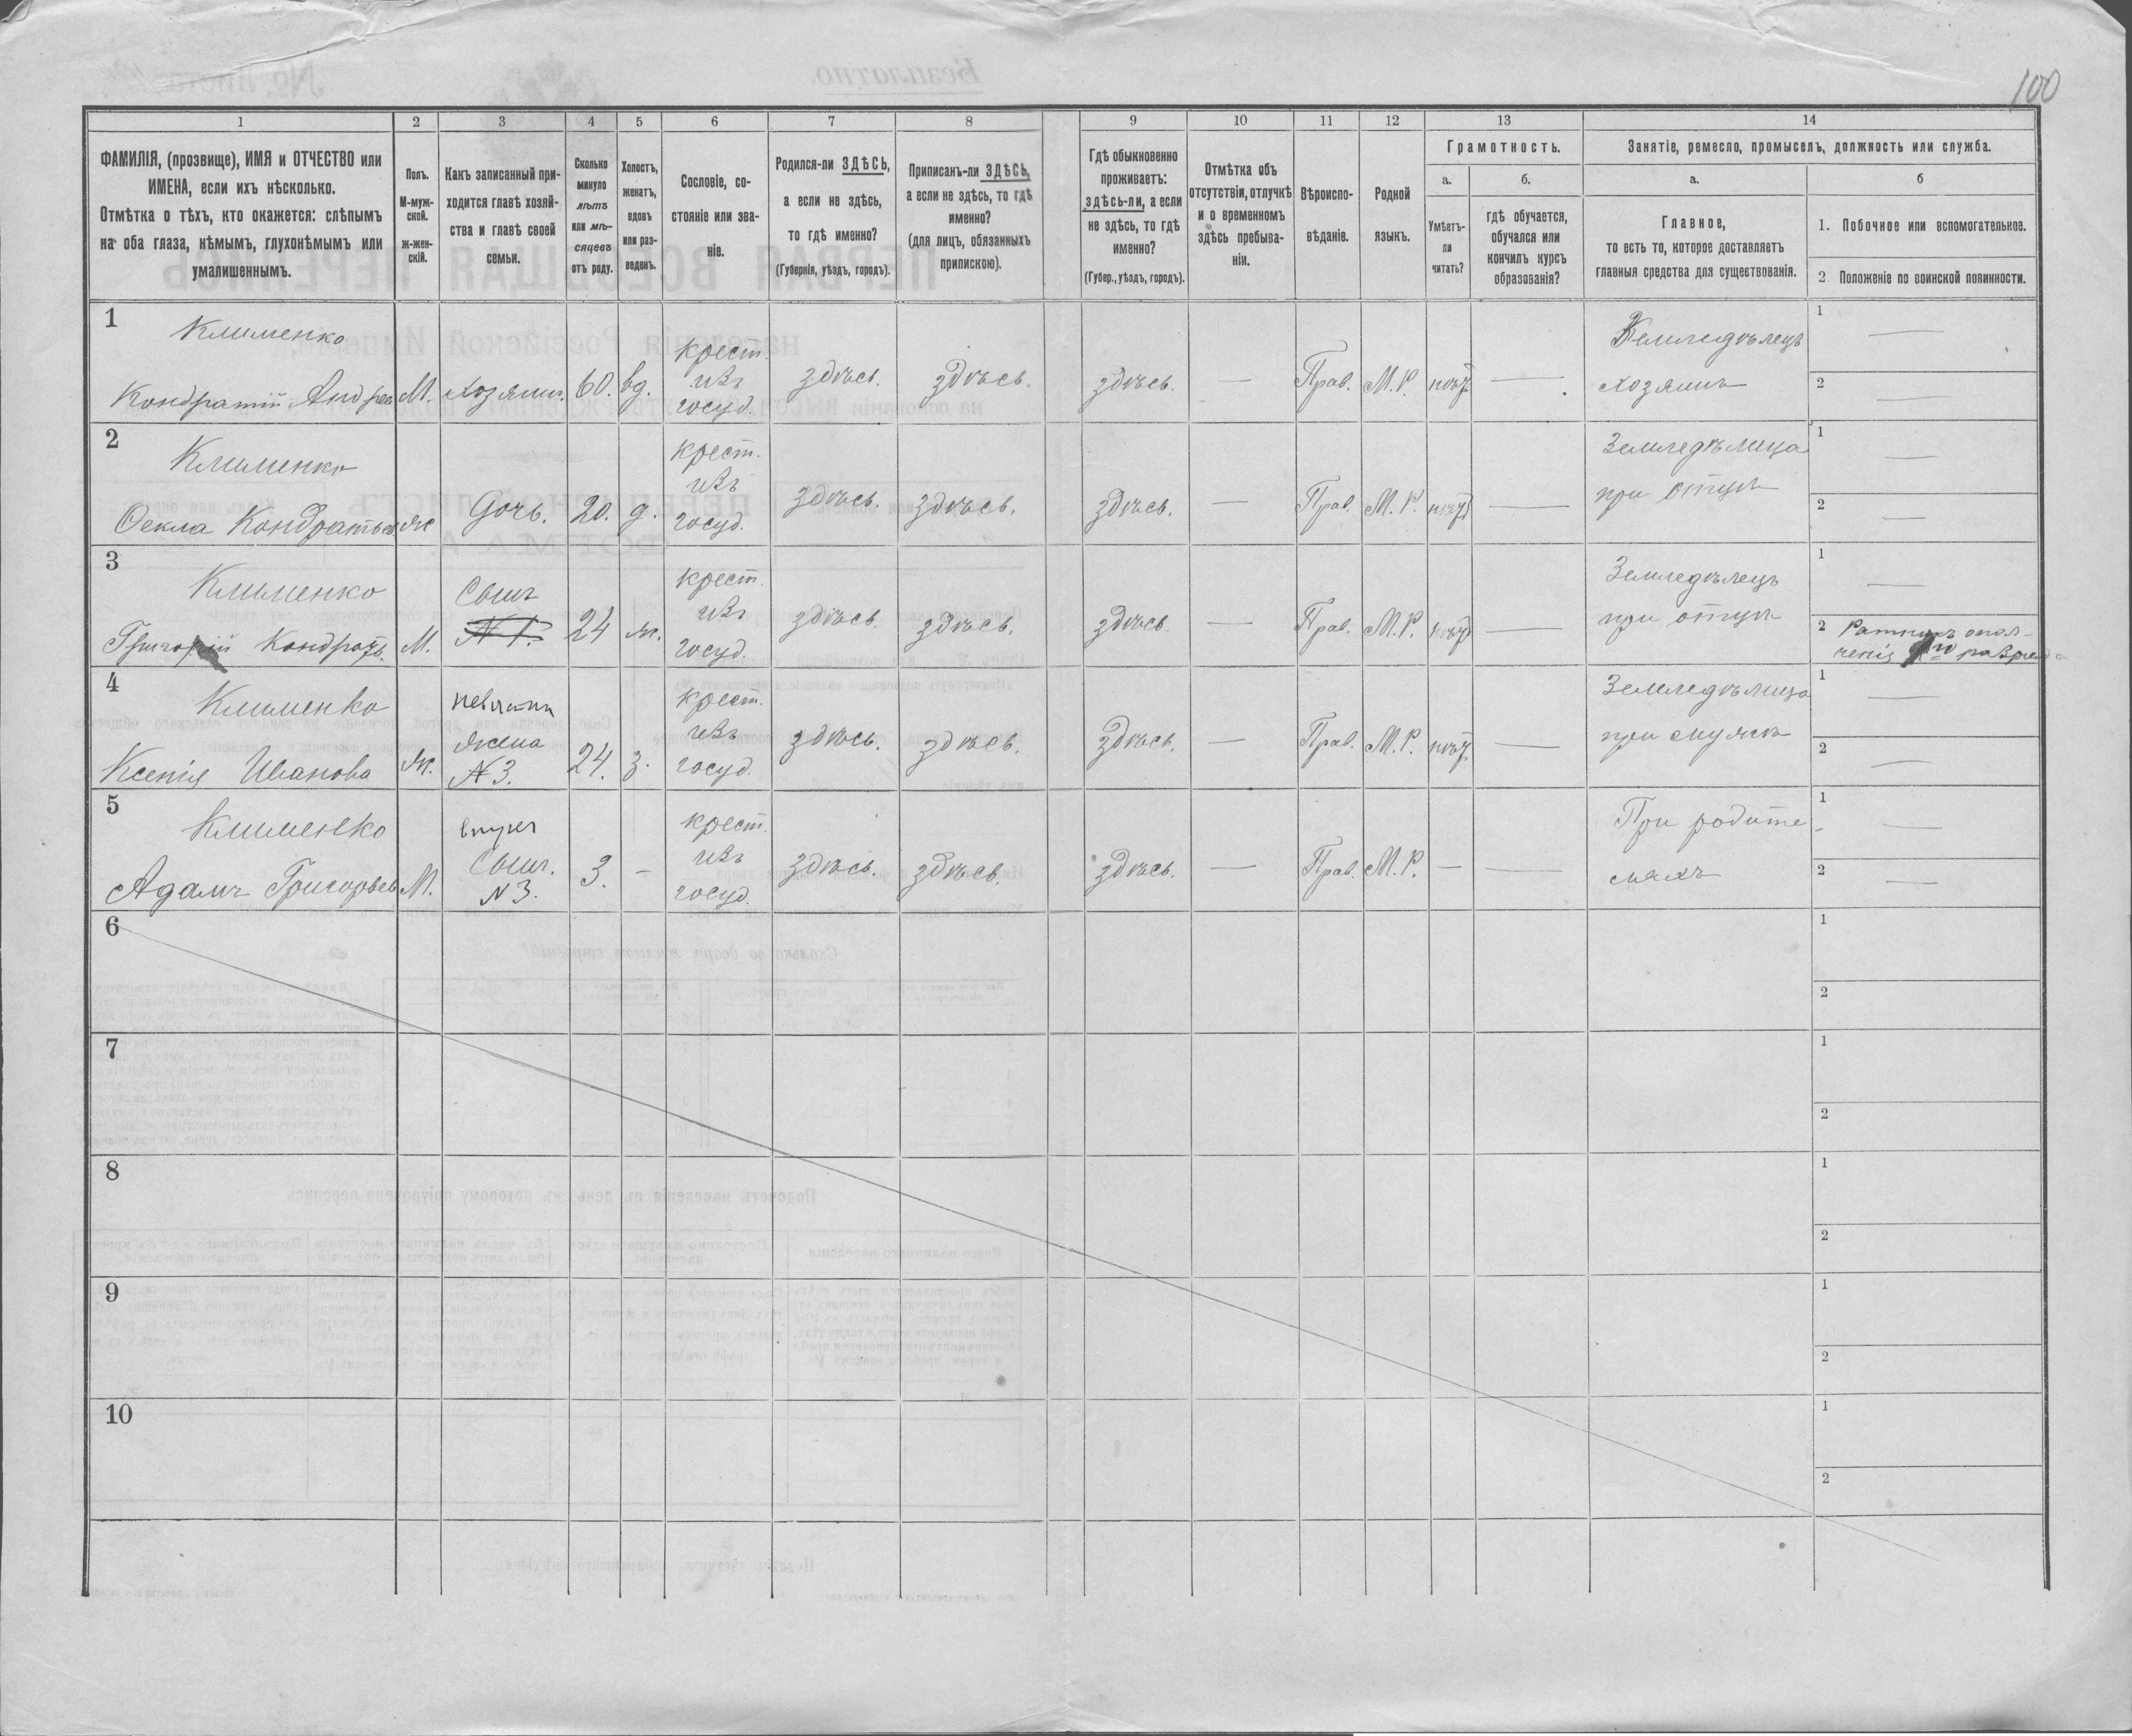 100
1
2
3
4
5
6
7
8
9
10
11
12
13
14
ФАМИЛІЯ, (прозвище), ИМЯ и ОТЧЕСТВО или
ИМЕНА, если ихъ нѣсколько.
Отмѣтка о тѣхъ, кто окажется: слѣпымъ
на оба глаза, нѣмымъ, глухонѣмымъ или
умалишеннымъ.
Полъ.
М-муж-
ской.
ж-жен-
скій.
Какъ записанный при-
ходится главѣ хозяй-
ства и главѣ своей
семьи.
Сколько
минуло
лѣтъ
или мѣ-
сяцевъ
отъ роду.
Холостъ,
женатъ,
вдовъ
или раз-
веденъ.
Сословіе, со-
стояніе или зва-
ніе.
Родился-ли ЗДѢСЬ,
а если не здѣсь,
то гдѣ именно?
(Губернія, уѣздъ, городъ).
Приписанъ-ли ЗДѢСЬ,
а если не здѣсь, то гдѣ
именно?
(для лицъ, обязанныхъ
припискою).
Гдѣ обыкновенно
проживаетъ:
здѣсь-ли, а если
не здѣсь, то гдѣ
именно?
(Губер., уѣздъ, городъ).
Отмѣтка объ
отсутствіи, отлучкѣ
и о временномъ
здѣсь пребыва-
ніи.
Вѣроиспо-
вѣданіе.
Родной
языкъ.
Грамотность.
а.
Умѣетъ-
ли
читать?
б.
гдѣ обучается,
обучался или
кончилъ курсъ
образованія?
Занятіе, ремесло, промыселъ, должность или служба.
а.
Главное,
то есть то, которое доставляетъ
главныя средства для существованія.
б
1. Побочное или вспомогательное.
2. Положеніе по воинской повинности.
1
Клименко
Кондратій Андрее
М. Хозяин. 60. вд.
крест.
изъ
госуд.
здѣсь. здѣсь. здѣсь. — Прав. М.Р. нѣт. —
Земледѣлецъ
хозяинъ
1 —
2 —
2
Клименко
Ѳекла Кондратьев
ж Дочь. 20. д.
крест.
изъ
госуд.
здѣсь. здѣсь. здѣсь. — Прав. М.Р. нѣт —
Земледѣлица
при отцѣ
1 —
2 —
3
Клименко
Григорій Кондрать.
М.
Сынъ
N 1.
24 ж.
крест.
изъ
госуд.
здѣсь. здѣсь. здѣсь. — Прав. М.Р. нѣт —
Земледѣлецъ
при отцѣ
1 —
2 Ратникъ опол-
ченія разряда
4
Клименко
Ксенія Иванова
ж.
невѣстка
жена
N 3.
24. з.
крест.
изъ
госуд.
здѣсь. здѣсь. здѣсь. — Прав. М.Р. нѣт. —
Земледѣлица
при мужѣ
1 —
2 —
5
Клименко
Адамъ Григорьев
М.
внукъ
Сынъ.
N 3.
3. —
крест.
изъ
госуд.
здѣсь. здѣсь. здѣсь. — Прав. М.Р. — —
При родите
ляхъ
1 —
2 —
6
1
2
7
1
2
8
1
2
9
1
2
10
1
2